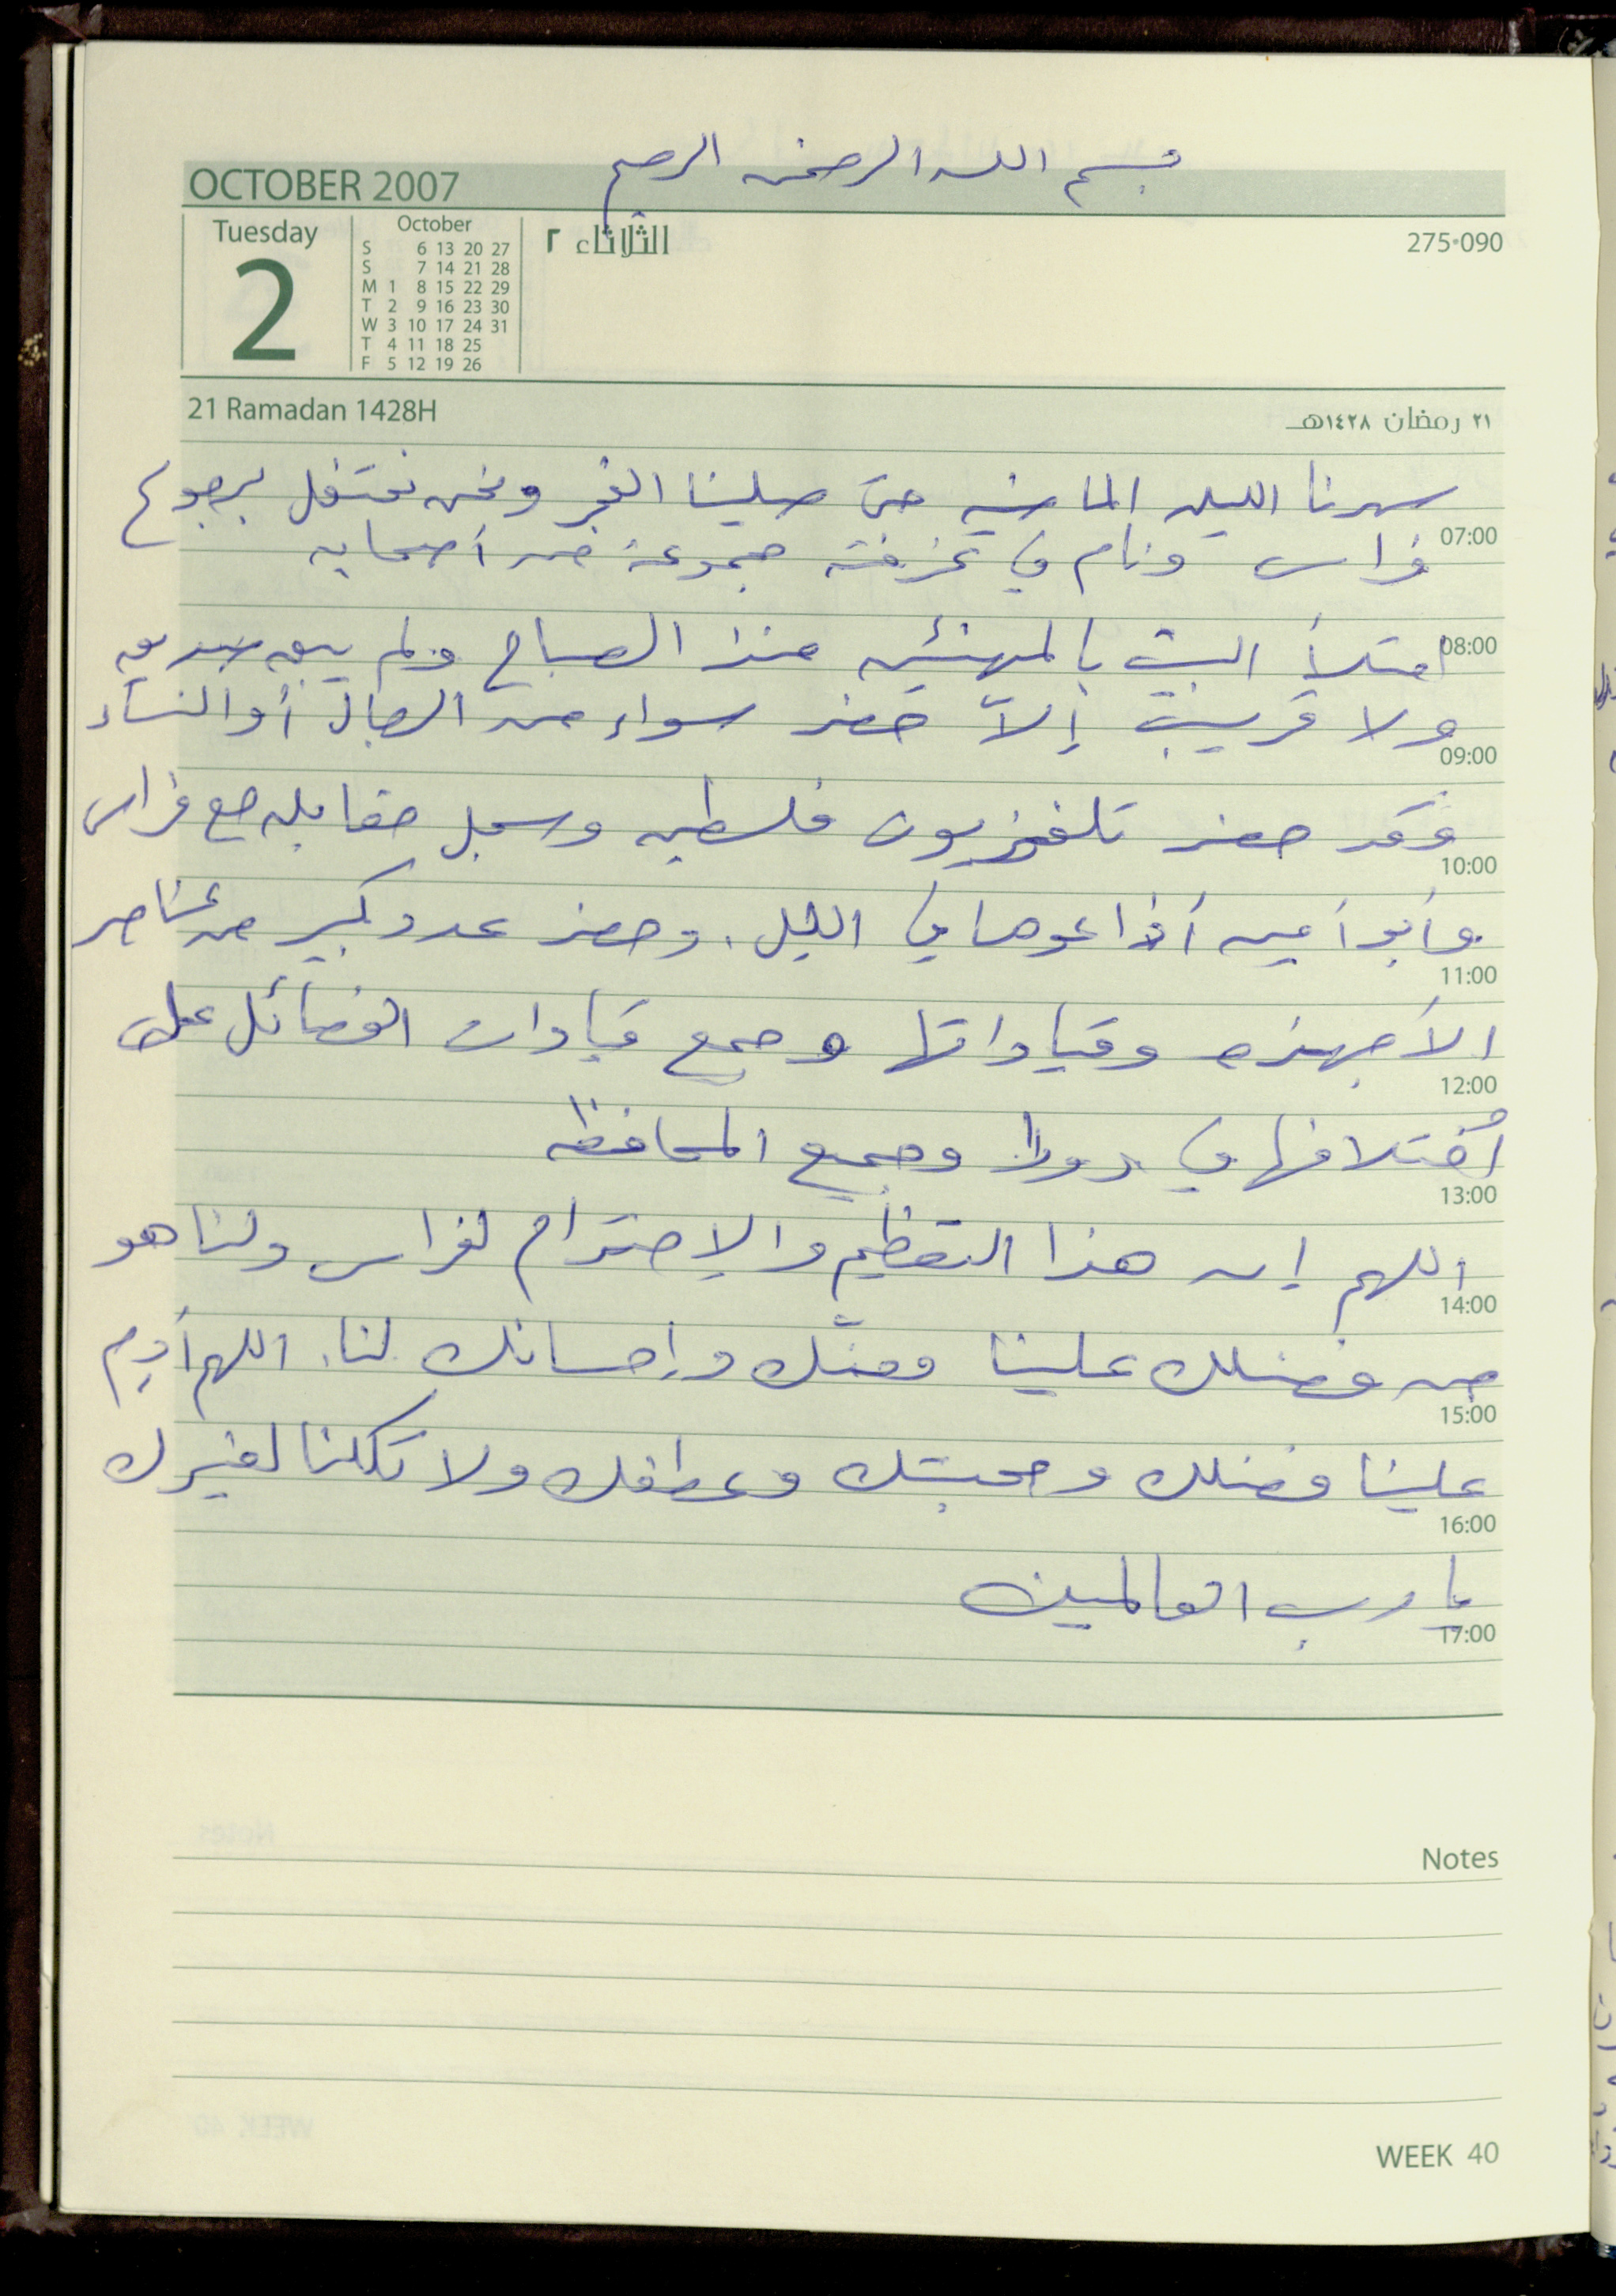 بسم الله الرحمن الرحيم
OCTOBER 2007
Tuesday
2
October
S 6 13 20 27
S 7 14 21 28
M 1 8 15 22 29
T 2 9 16 23 30
W 3 10 17 24 31
T 4 11 18 25
F 5 12 19 26
الثلاثاء ٢
275-090
21 Ramadan 1428H
٢١ رمضان ١٤٢٨هـ
سهرنا الليلة الماضية حتى صلينا الفجر ونحن نحتفل برجوع
07:00
فراس ونام في غرفته مجموعة من أصحابه
08:00
امتلأ البيت بالمهنئين منذ الصباح ولم يبق صديق
ولا قريب إلاّ حضر سواء من الرجال أو النساء
09:00
فقد حضر تلفزيون فلسطين وسجل مقابلة مع فراس
10:00
وأبو أمين أذاعوها في الليل. وحضر عدد كبير من عناصر
11:00
الأجهزة وقياداتها وجميع قيادات الفصائل على
12:00
أختلافها في دورا وجميع المحافظة
13:00
اللهم إن هذا التعظيم والإحترام لفراس ولنا هو
14:00
من فضلك علينا ومنّك وإحسانك لنا. اللهم أدِم
15:00
علينا فضلك ومحبتك وعطفك ولا تكلنا لغيرك
16:00
يا رب العالمين
17:00
Notes
WEEK 40